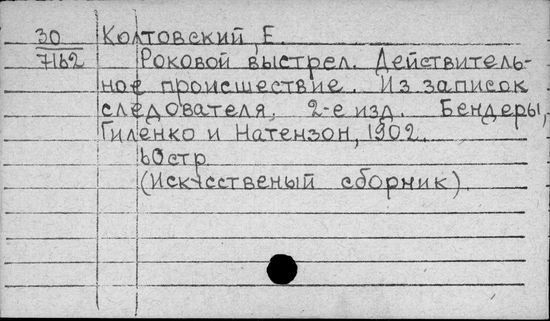 30 Колтовский, Е.
7162 Роковой выстрел. Действитель-
ное происшествие. Из записок
следователя. 2-е изд. Бендеры,
Гиленко и Натензон, 1902.
60стр
(Искусственый сборник).